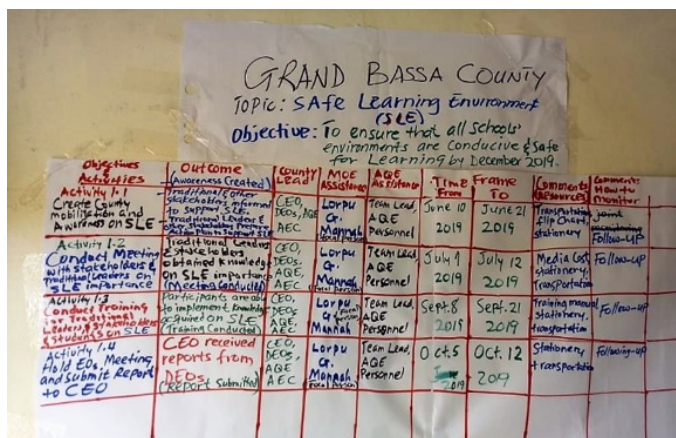 GRAND BASSA COUNTY
TOPIC: SAfe Learning Environment
(SLE)
Objective: To ensure that all schools'
environments are conducive & safe
for Learning by December 2019.
Objectives
& Activities
Outcome
(Awareness Created)
County
Lead
MOE
Assistance
AQE
Assistance
Time Frame
From
To
Comments
(Resources)
Comments
How to
monitor
Activity 1.1
Create County
mobilization and
Awareness on SLE
Traditional & other
stakeholders informed
to support SLE.
Traditional Leaders &
other stakeholders
Action Plan to Support SLE
CEO,
DEOs, AQE
AEC
Lorpu
G.
Mannah
(Focal person)
Team Lead,
AQE
Personnel
June 10
2019
June 21
2019
Transportation
flip Chart,
stationery
joint
Follow-UP
Activity 1.2
Conduct Meeting
with stakeholders &
Traditional Leaders on
SLE importance
Traditional Leaders
& stakeholders
obtained Knowledge
on SLE importance
(Meeting Conducted)
CEO,
DEOs,
AQE,
AEC
Lorpu
G.
Mannah
(Focal person)
Team Lead,
AQE
Personnel
July 1
2019
July 12
2019
Media Cost
stationery,
transportation
Follow-UP
Activity 1.3
Conduct Training
for Traditional
Leaders, Stakeholders
& students on SLE
Participants are able
to implement knowledge
acquired on SLE
(Training Conducted)
CEO,
DEOs,
AQE,
AEC
Lorpu
G. (Focal
person)
Mannah
Team Lead,
AQE
Personnel
Sept. 8
2019
Sept. 21
2019
Training manual
Stationery,
transportation
Follow-up
Activity 1.4
Hold EOs, Meeting
and Submit Report
to CEO
CEO received
reports from
DEOs
(Report Submitted)
CEO,
DEOs,
AQE
AEC
Lorpu
G.
Mannah
(Focal Person)
Team Lead,
AQE
Personnel
Oct. 5
2019
Oct. 12
2019
Stationery
transportation
Following-up